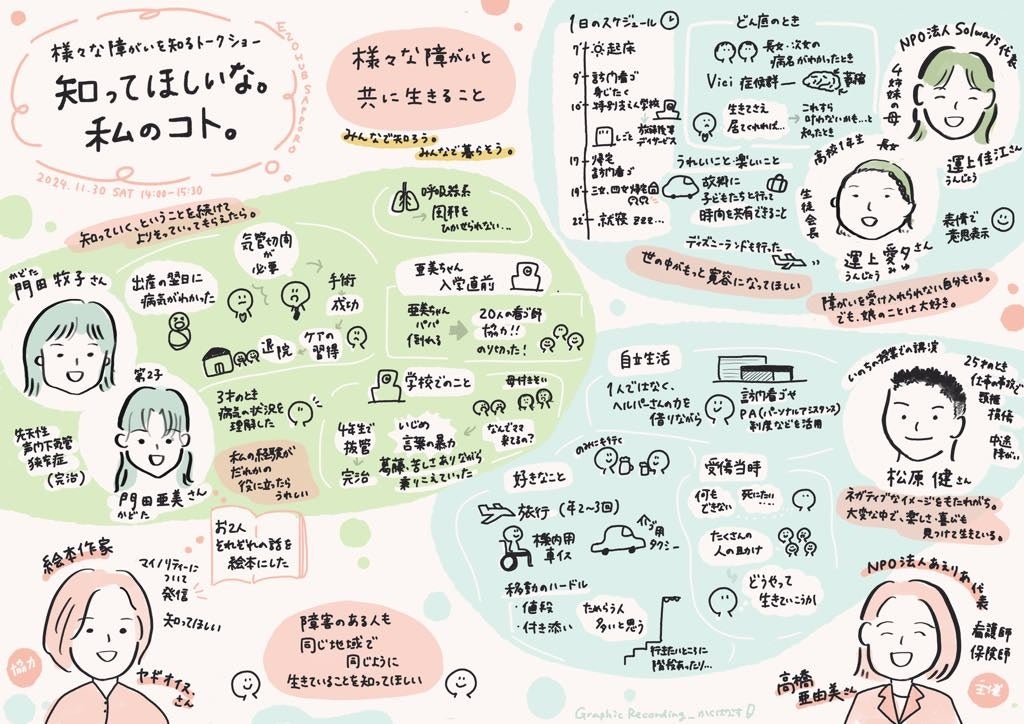 様々な障がいを知るトークショー
知ってほしいな。
私のコト。
EZOHUB SAPPORO
2024.11.30 SAT 14:00-15:30
様々な障がいと
共に生きること
みんなで知ろう。
みんなで暮らそう。
知っていく、ということを続けて
よりそっていってもらえたら。
かどた
門田 牧子さん
出産の翌日に
病気がわかった
気管切開
が
必要
手術
成功
ケアの
習得
退院
呼吸器系
風邪を
ひかせられない…
亜美ちゃん
入学直前
亜美ちゃん
パパ
倒れる
20人の看ゴ師
協力!!
のりきった!
第2子
先天性
声門下気管
狭窄症
(完治)
門田 亜美さん
かどた
3才のとき
病気の状況を
理解した
学校でのこと
母付きそい
なんでママ
来てるの?
4年生で
抜管
完治
いじめ
言葉の暴力
葛藤、苦しさありながら
乗りこえていった
私の経験が
だれかの
役に立ったら
うれしい
お2人
それぞれの話を
絵本にした
絵本作家
マイノリティーに
ついて
発信
知ってほしい
協力
ヤギオイスさん
障害のある人も
同じ地域で
同じように
生きていることを知ってほしい
1日のスケジュール
7 起床
9 訪問看ゴ
身じたく
10 特別支えん学校
しごと
放課後等
デイサービス
17 帰宅
訪問看ゴ
19 三女、四女帰宅
22 就寝 zzz…
どん底のとき
長女・次女の
病名がわかったとき
Vici 症候群
萎縮
生きてさえ
居てくれれば…
これすら
叶わないかも…と
知ったとき
うれしいこと・楽しいこと
故郷に
子どもたちと行って
時間を共有できること
ディズニーランドも行った
世の中がもっと寛容になってほしい
NPO法人 Solways 代表
4姉妹の母
運上佳江さん
うんじょう
高校1年生
長女
生徒会長
運上 愛夕さん
うんじょう みゆ
表情で
意思表示
障がいを受け入れられない自分もいる。
でも、娘のことは大好き。
自立生活
1人ではなく、
ヘルパーさんの力を
借りながら
訪問看ゴや
PA(パーソナルアシスタンス)
制度などを活用
のみにも行く
好きなこと
旅行(年2~3回)
機内用
車イス
介ゴ用
タクシー
移動のハードル
・値段
・付き添い
ためらう人
多いと思う
行きたいところに
階段あったり…
受傷当時
何も
できない
死にたい…
たくさんの
人の助け
どうやって
生きていこうか
いのちの授業での講演
25才のとき
仕事の事故で
頚椎
損傷
中途
障がい
松原 健さん
ネガティブなイメージをもたれがち。
大変な中で、楽しさ・喜びも
見つけて生きている。
NPO法人あえりあ代表
看護師
保健師
高橋
亜由美さん
主催
Graphic Recording_かくはなす